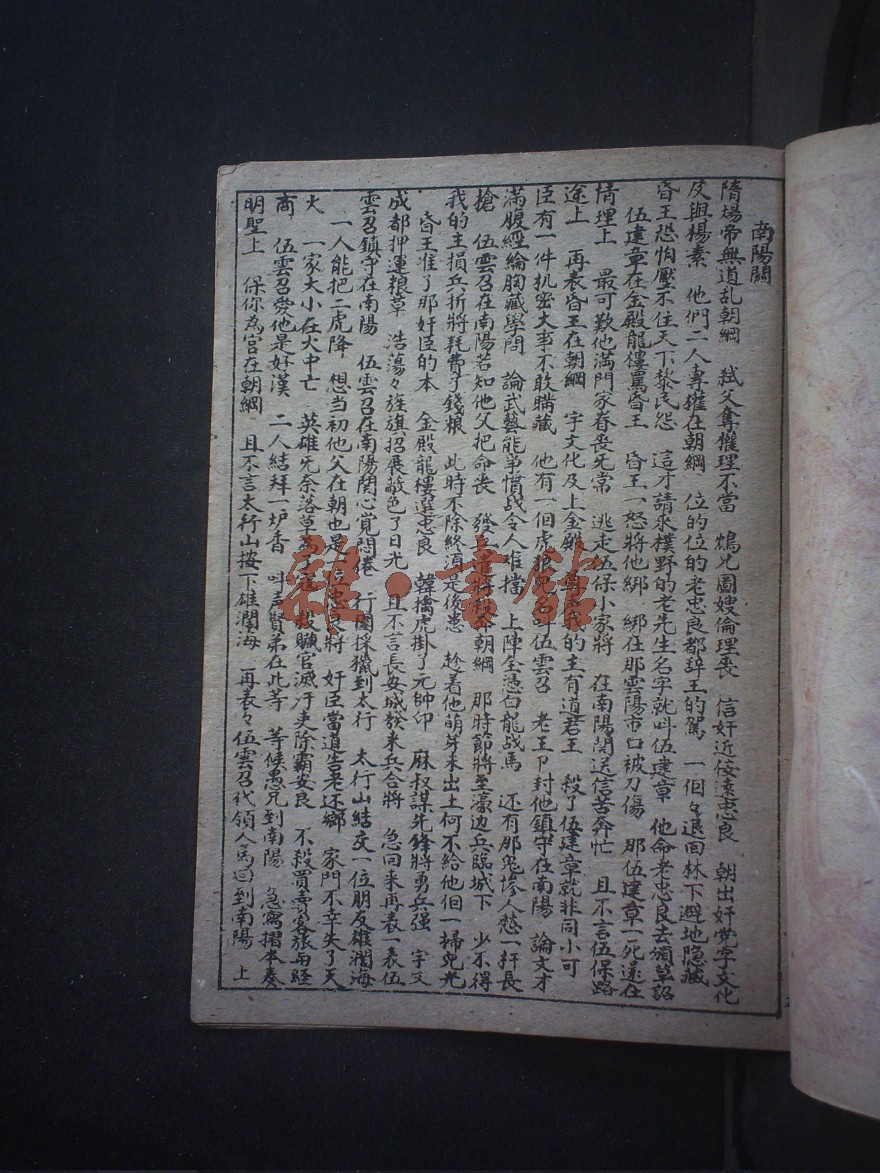 南陽關
隋煬帝無道乱朝綱　弒父奪權理不當　鴆兄圖嫂倫理丧　信奸近佞遠忠良　朝出奸党宇文化
及與楊素　他們二人專權在朝綱　位的位的老忠良都辞王的駕　一個々退回林下避地隐藏
昏王恐怕壓不住天下黎民怨　這才請來樸野的老先生名字就叫伍建章　他命老忠良去頒草詔
伍建章在金殿龍樓罵昏王　昏王一怒將他綁　綁在那雲陽市口被刀傷　那伍建章一死還在
情理上　最可歎他滿門家眷丧无常　逃走伍保小家將　在南陽関送信苦奔忙　且不言伍保路
途上　再表昏王在朝綱　宇文化及上金殿　尊声我的主有道君王　殺了伍建章就非同小可
臣有一件机密大事不敢瞞藏　他有一個虎狼兒名叫伍雲召　老王爷封他鎮守在南陽　論文才
滿腹經綸胸藏學問　論武藝能弟慣战令人难擋　上陣全憑白龍战馬　还有那鬼慘人愁一杆長
槍　伍雲召在南陽若知他父把命丧　發兵遣將殺奔朝綱　那時節將至濠边兵臨城下　少不得
我的主損兵折將耗費了錢粮　此時不除終須是後患　趁着他萌芽未出土何不給他個一掃兒光
昏王准了那奸臣的本　金殿龍樓選忠良　韓擒虎掛了元帥印　麻叔謀先鋒將勇兵强　宇文
成都押運粮草　浩蕩々旌旗招展蔽色了日光　且不言長安城發来兵合將　急回来再表一表伍
雲召鎮守在南陽　伍雲召在南陽関心覚悶倦　行圍採獵到太行　太行山結交一位朋友雄濶海
一人能把二虎降　想当初他父在朝也是一位忠良將　奸臣當道告老还鄉　家門不幸失了天
火　一家大小在火中亡　英雄无奈落草為　殺贓官滅汙吏除霸安良　不殺買賣客旅与經
商　伍雲召爱他是好漢　二人結拜一炉香　叫声賢弟在此等　等候愚兄到南陽　急寫摺本奏
明聖上　保你為官在朝綱　且不言太行山按下雄濶海　再表々伍雲召代領人馬回到南陽　上
雜·書館